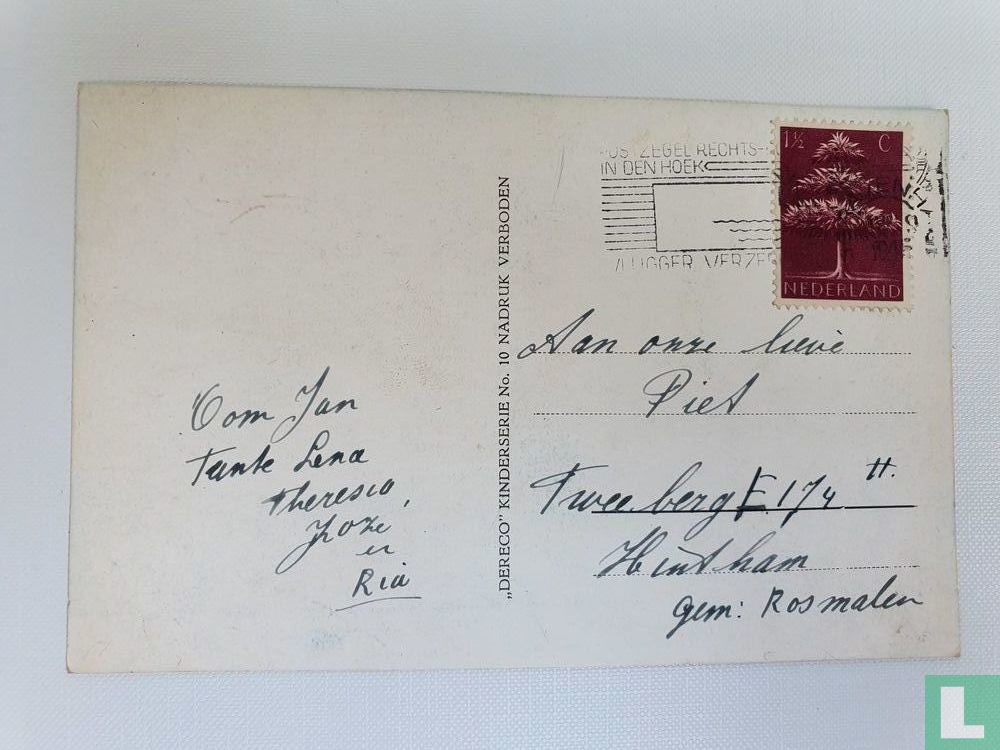 POSTZEGEL RECHTS-
IN DEN HOEK
VLUGGER VERZE
1½ C
NEDERLAND
Aan onze lieve
Piet
Tweeberg E 174 H.
Hintham
gem: Rosmalen
Oom Jan
Tante Lena
Theresia,
en
Ria
„DERECO” KINDERSERIE No. 10 NADRUK VERBODEN
L